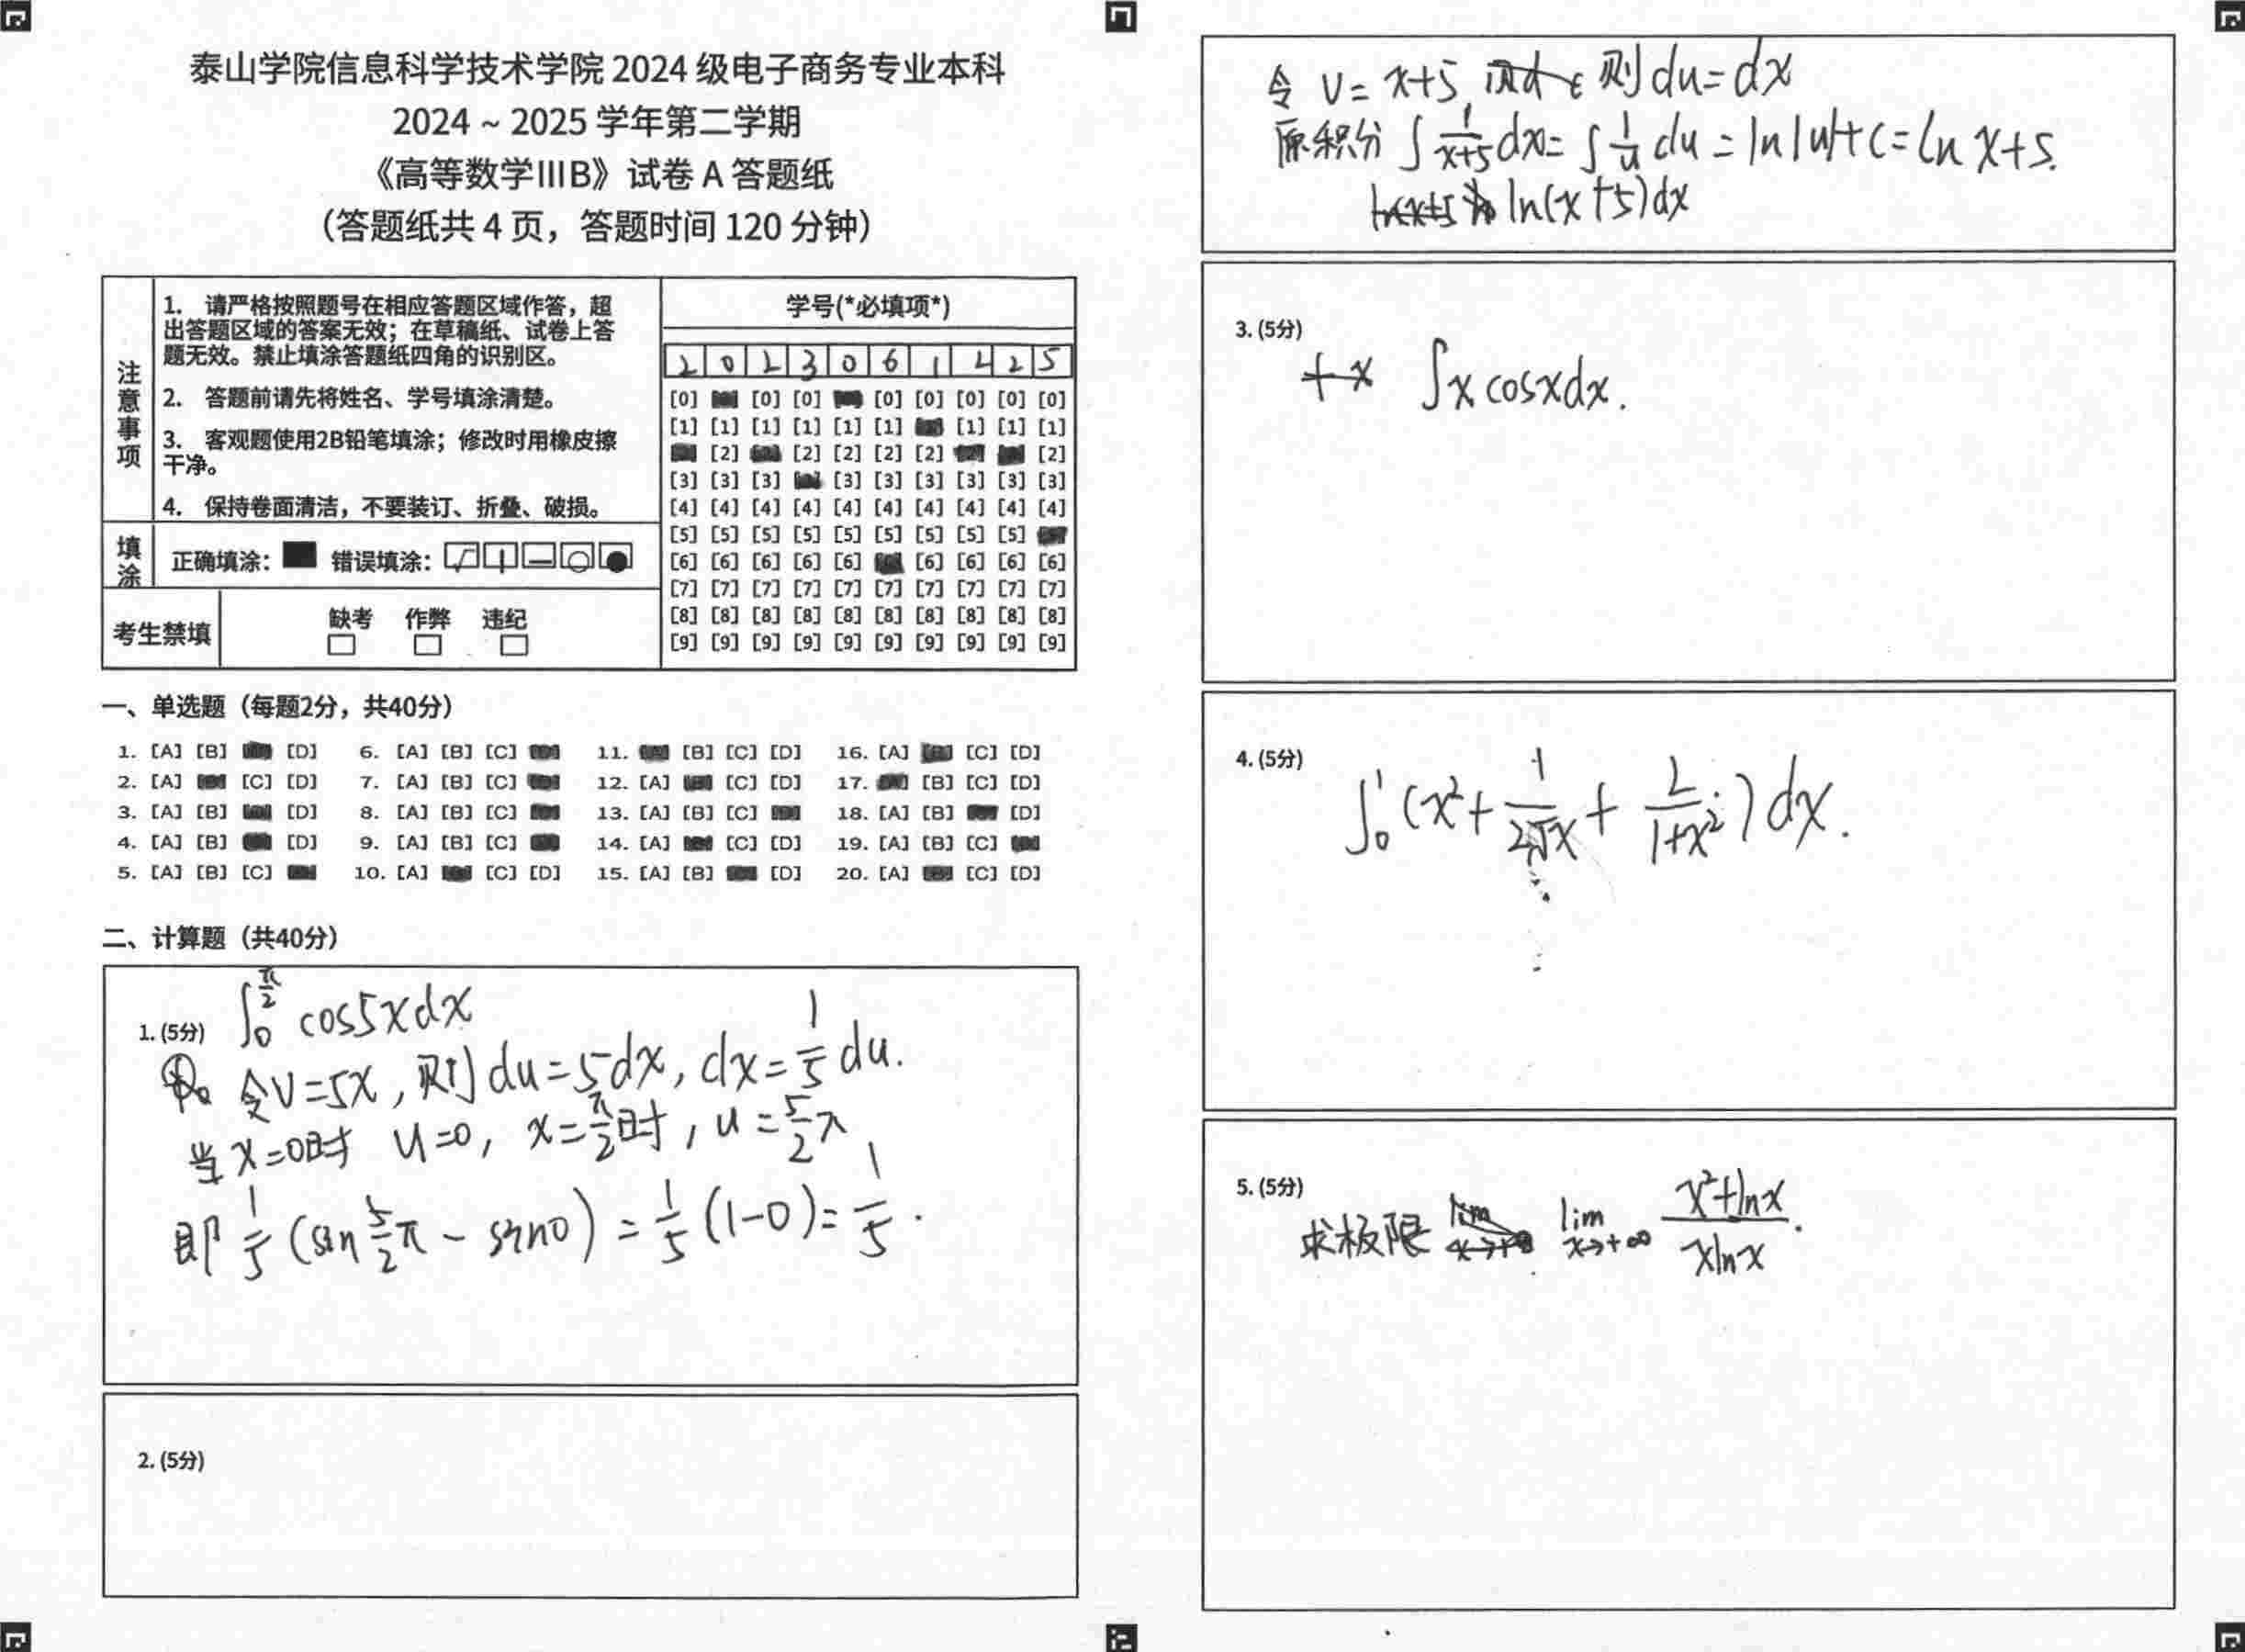 泰山学院信息科学技术学院 2024 级电子商务专业本科
2024 ~ 2025 学年第二学期
《高等数学ⅢB》试卷 A 答题纸
（答题纸共 4 页，答题时间 120 分钟）
注意事项
1. 请严格按照题号在相应答题区域作答，超
出答题区域的答案无效；在草稿纸、试卷上答
题无效。禁止填涂答题纸四角的识别区。
2. 答题前请先将姓名、学号填涂清楚。
3. 客观题使用2B铅笔填涂；修改时用橡皮擦
干净。
4. 保持卷面清洁，不要装订、折叠、破损。
填涂
正确填涂： 错误填涂：
考生禁填
缺考 作弊 违纪
学号(*必填项*)
2 0 2 3 0 6 1 2 2 5
[0] [0] [0] [0] [0] [0] [0] [0]
[1] [1] [1] [1] [1] [1] [1] [1] [1]
[2] [2] [2] [2] [2] [2]
[3] [3] [3] [3] [3] [3] [3] [3] [3]
[4] [4] [4] [4] [4] [4] [4] [4] [4] [4]
[5] [5] [5] [5] [5] [5] [5] [5] [5]
[6] [6] [6] [6] [6] [6] [6] [6] [6]
[7] [7] [7] [7] [7] [7] [7] [7] [7] [7]
[8] [8] [8] [8] [8] [8] [8] [8] [8] [8]
[9] [9] [9] [9] [9] [9] [9] [9] [9] [9]
一、单选题（每题2分，共40分）
1. [A] [B] [D] 6. [A] [B] [C] 11. [B] [C] [D] 16. [A] [C] [D]
2. [A] [C] [D] 7. [A] [B] [C] 12. [A] [C] [D] 17. [B] [C] [D]
3. [A] [B] [D] 8. [A] [B] [C] 13. [A] [B] [C] 18. [A] [B] [D]
4. [A] [B] [D] 9. [A] [B] [C] 14. [A] [C] [D] 19. [A] [B] [C]
5. [A] [B] [C] 10. [A] [C] [D] 15. [A] [B] [D] 20. [A] [C] [D]
二、计算题（共40分）
1. (5分) ∫₀^(π/2) cos5xdx
令u=5x, 则du=5dx, dx=1/5 du.
当x=0时 u=0, x=π/2时, u=5/2π
即 1/5 (sin 5/2 π - sin0) = 1/5 (1-0)= 1/5.
2. (5分)
令 u= x+5, 则du=dx
原积分 ∫ 1/(x+5) dx= ∫ 1/u du = ln|u|+C= ln x+5.
ln(x+5)dx
3. (5分)
∫x cosxdx.
4. (5分)
∫₀¹ (x²+ 1/(2√x) + 2/(1+x²)) dx.
5. (5分)
求极限 lim x→+∞ (x²+lnx)/(xlnx).